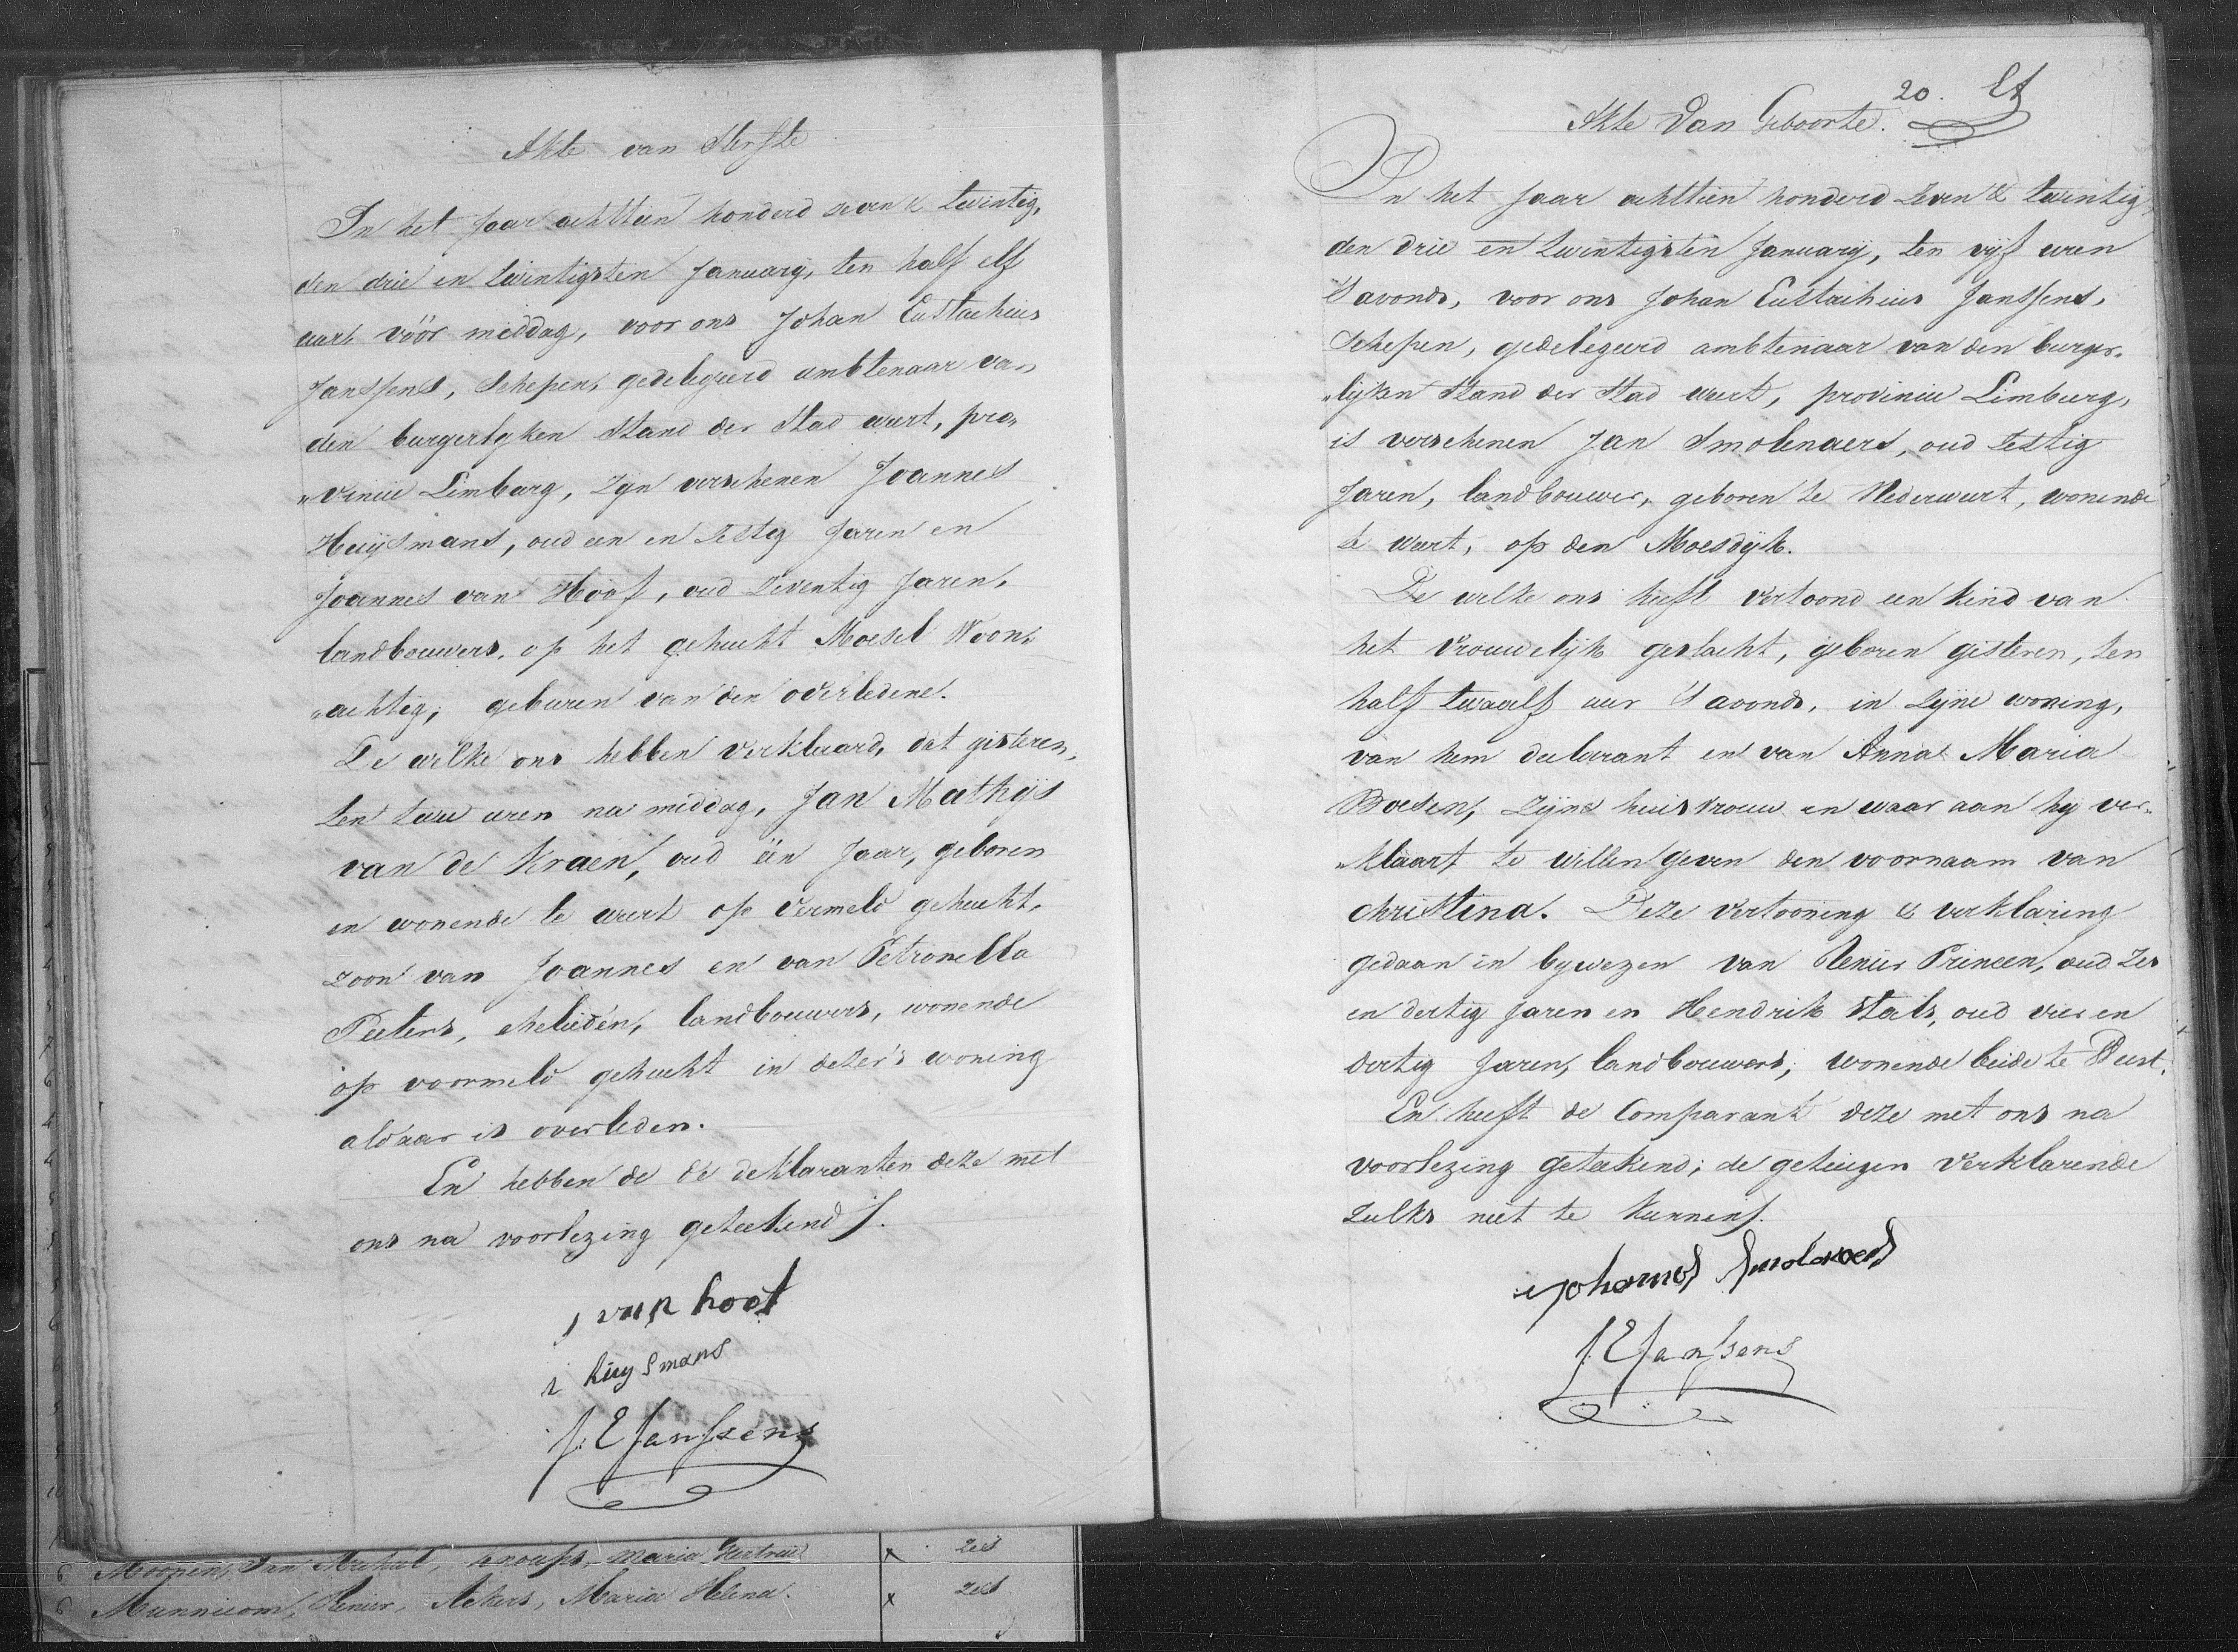 Akte van Sterfte
In het Jaar achttien honderd seven & twintig,
den drie en twintigsten January, ten half elf
uure vóór middag, voor ons Johan Eustachius
Janssens, Schepen, gedelegeerd ambtenaar van
den burgerlyken Stand der Stad weert, pro„
„vincie Limburg, zyn verschenen Joannes
Huijsmans, oud een en Zestig Jaren en
Joannes van Hoof, oud Zeventig Jaren,
landbouwers, op het gehucht Moesel Woon„
„achtig, geburen van den overledene.
De welke ons hebben verklaard, dat gisteren,
ten twee uren na middag, Jan Mathijs
van de Kraen, oud één Jaar, geboren
en wonende te weert op vermeld gehucht,
zoon van Joannes en van Petronella
Peeters, ehelieden, landbouwers, wonende
op voormeld gehucht in dezer's woning
aldaar is overleden.
En hebben de de deklaranten deze met
ons na voorlezing geteekend ƒ.
J van hoof
i huysmans
J: E Janssens
6 Moonen, Jan Michiel, Knoups, Maria Gertrud x 2es
6 Munnicom, Renier, Ackers, Maria Helena. x 2es
20. Et
Akte Van Geboorte.
In het Jaar achttien honderd Zeven & twintig,
den drie en twintigsten January, ten vijf uren
S'avonds, voor ons Johan Eustachius Janssens,
Schepen, gedelegeerd ambtenaar van den burger„
„lijken Stand der Stad weert, provincie Limburg,
is verschenen Jan Smolenaers, oud Zestig
Jaren, landbouwer, geboren te Nederweert, wonende
te weert, op den Moesdijk.
De welke ons heeft vertoond een kind van
het Vrouwelijk geslacht, geboren gisteren, ten
half twaalf uur S'avonds, in zijne woning,
van hem declarant en van Anna Maria
Boesen, Zijne huisvrouw en waar aan hij ver„
„klaart te willen geven den voornaam van
Christina. Deze vertooning & verklaring
gedaan in bywezen van Renier Princen, oud Zes
en dertig Jaren en Hendrik Stals, oud vier en
dertig Jaren, landbouwers, wonende beide te Weert.
En heeft de Comparant deze met ons na
voorlezing geteekend; de getuigen Verklarende
zulks niet te kunnen ƒ.
Johannes Smolenaers
J: E Janssens